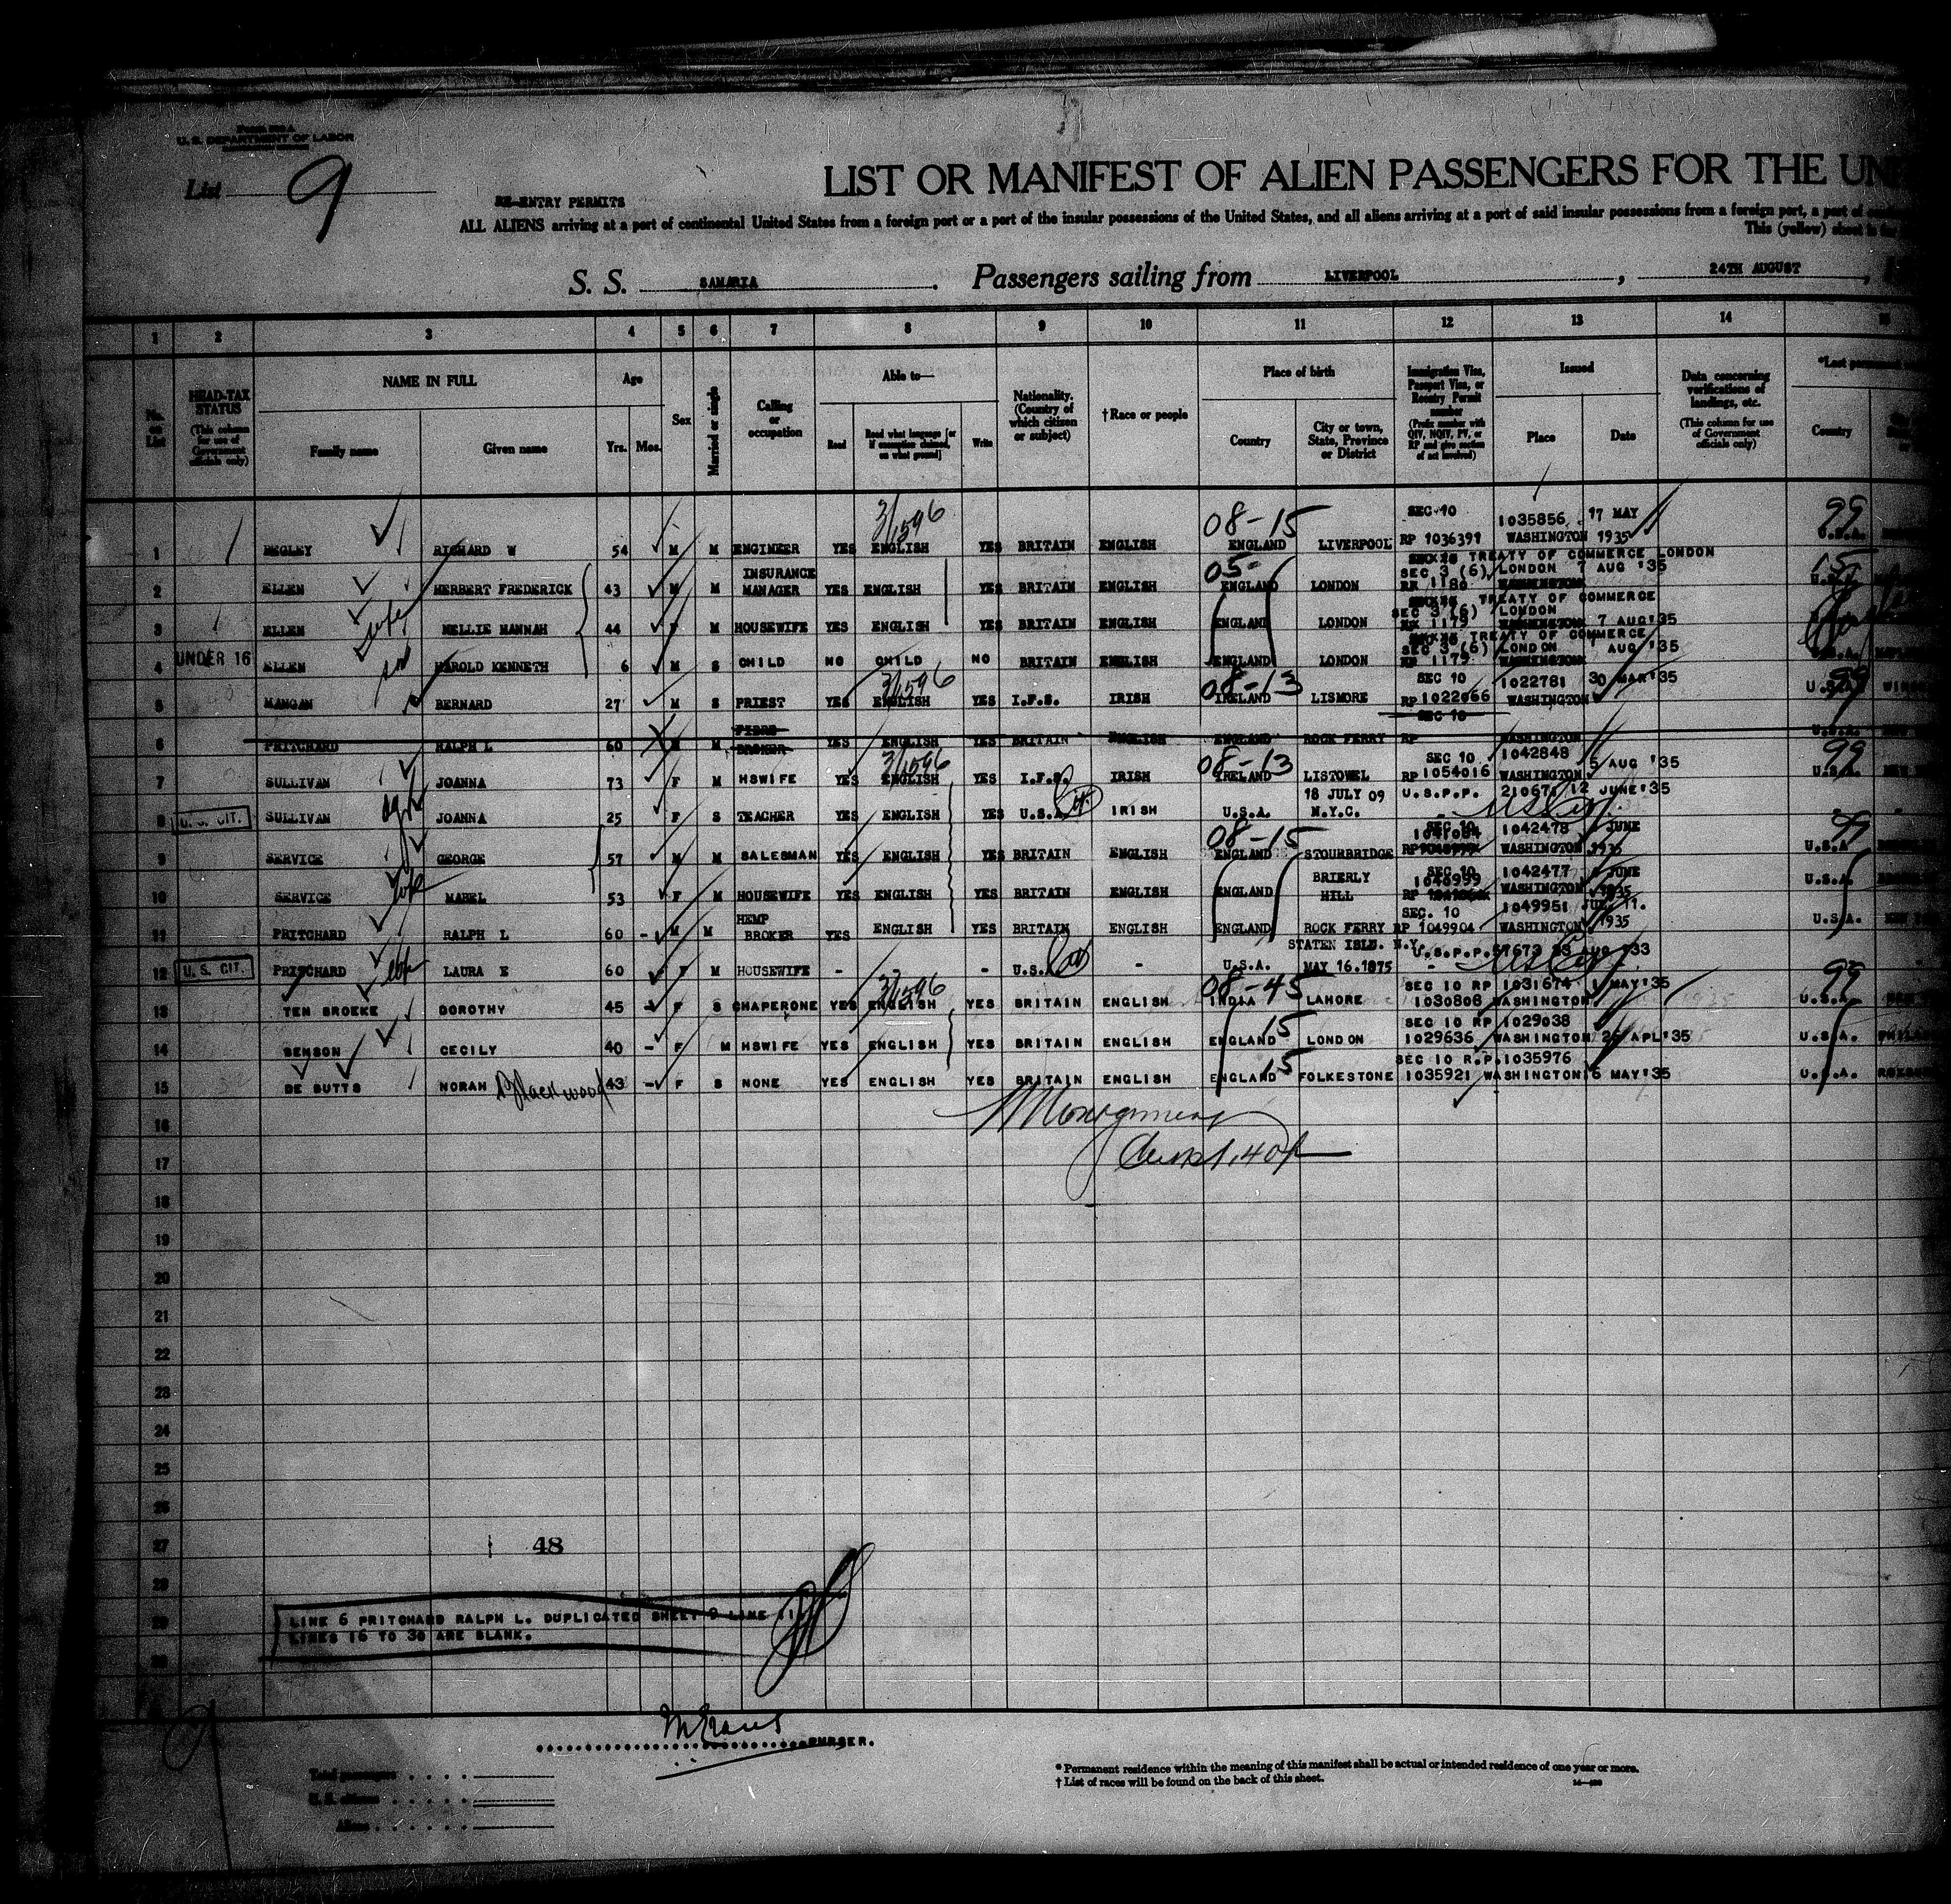 U. S. DEPARTMENT OF LABOR
List 9
LIST OR MANIFEST OF ALIEN PASSENGERS FOR THE UN
RE-ENTRY PERMITS
ALL ALIENS arriving at a port of continental United States from a foreign port or a part of the insular possessions of the United States, and all aliens arriving at a port of said insular possessions from a foreign port, a part of
This (yellow) sheet is for
S. S. SAMARIA . Passengers sailing from LIVERPOOL , 24TH AUGUST ,
1 2 3 4 5 6 7 8 9 10 11 12 13 14 15
No. on List
HEAD-TAX STATUS (This column for use of Government officials only)
NAME IN FULL Family name Given name
Age Yrs. Mos.
Sex
Married or single
Calling or occupation
Able to— Read Read what language [or if exemption claimed, on what ground] Write
Nationality. (Country of which citizen or subject)
†Race or people
Place of birth Country City or town, State, Province or District
Immigration Visa, Passport Visa, or Reentry Permit number (Prefix number with QIV, NQIV, PV, or RP and give section of act involved)
Issued Place Date
Data concerning verifications of landings, etc. (This column for use of Government officials only)
*Last permanent Country
3/1596 08-15 SEC 10 1035856 17 MAY 99
1 BEGLEY RICHARD W 54 M M ENGINEER YES ENGLISH YES BRITAIN ENGLISH ENGLAND LIVERPOOL RP 1036391 WASHINGTON 1935 U.S.A.
INSURANCE 05- TREATY OF COMMERCE LONDON 15
SEC 3 (6) LONDON 7 AUG '35
2 ELLEN HERBERT FREDERICK 43 M M MANAGER YES ENGLISH YES BRITAIN ENGLISH ENGLAND LONDON 1186 WASHINGTON
TREATY OF COMMERCE
wife SEC 3 (6) LONDON
3 ELLEN NELLIE HANNAH 44 F M HOUSEWIFE YES ENGLISH YES BRITAIN ENGLISH ENGLAND LONDON 1179 WASHINGTON 7 AUG'35
TREATY OF COMMERCE
UNDER 16 son SEC 3 (6) LONDON 7 AUG '35
4 ELLEN HAROLD KENNETH 6 M S CHILD NO CHILD NO BRITAIN ENGLISH ENGLAND LONDON 1179 WASHINGTON U.S.A.
3/1596 08-13 SEC 10 1022781 30 MAR'35 99
5 MANGAN BERNARD 27 M S PRIEST YES ENGLISH YES I.F.S. IRISH IRELAND LISMORE RP 1022066 WASHINGTON U.S.A.
SEC 10
6 PRITCHARD RALPH L 60 M M BROKER YES ENGLISH YES BRITAIN ENGLISH ENGLAND ROCK FERRY RP WASHINGTON U.S.A.
3/1596 08-13 SEC 10 1042848 5 AUG '35 99
7 SULLIVAN JOANNA 73 F M HSWIFE YES ENGLISH YES I.F.S. IRISH IRELAND LISTOWEL RP 1054016 WASHINGTON U.S.A.
18 JULY 09 U.S.P.P. 210671 12 JUNE'35
8 U. S. CIT. SULLIVAN JOANNA 25 F S TEACHER YES ENGLISH YES U.S.A. IRISH U.S.A. N.Y.C.
08-15 SEC 10 1042478 JUNE 99
9 SERVICE GEORGE 57 M M SALESMAN YES ENGLISH YES BRITAIN ENGLISH ENGLAND STOURBRIDGE RP WASHINGTON 1935 U.S.A.
BRIERLY SEC 10 1046999 1042477 JUNE
10 SERVICE wife MABEL 53 F M HOUSEWIFE YES ENGLISH YES BRITAIN ENGLISH ENGLAND HILL RP WASHINGTON 1935 U.S.A.
HEMP SEC. 10 1049951 JUL 11.
11 PRITCHARD RALPH L 60 - M M BROKER YES ENGLISH YES BRITAIN ENGLISH ENGLAND ROCK FERRY RP 1049904 WASHINGTON 1935 U.S.A.
STATEN ISLE. N.Y. U.S.P.P. 57673 AUG '33
12 U. S. CIT. PRITCHARD wife LAURA E 60 F M HOUSEWIFE - - U.S.A. - U.S.A. MAY 16.1875 -
3/1596 08-45 SEC 10 RP 1031674 1 MAY'35 99
13 TEN BROEKE DOROTHY 45 F S CHAPERONE YES ENGLISH YES BRITAIN ENGLISH INDIA LAHORE 1030808 WASHINGTON U.S.A.
15 SEC 10 RP 1029038
14 BENSON CECILY 40 - F M HSWIFE YES ENGLISH YES BRITAIN ENGLISH ENGLAND LONDON 1029636 WASHINGTON 26 APL'35 U.S.A.
15 SEC 10 R.P. 1035976
15 DE BUTTS NORAH Blackwood 43 - F S NONE YES ENGLISH YES BRITAIN ENGLISH ENGLAND FOLKESTONE 1035921 WASHINGTON 6 MAY'35 U.S.A.
16
17
18
19
20
21
22
23
24
25
26
27 48
28
29 LINE 6 PRITCHARD RALPH L. DUPLICATED SHEET 9 LINE 11
LINES 16 TO 30 ARE BLANK.
30
PURSER.
Total passengers
U. S. citizens
Aliens
* Permanent residence within the meaning of this manifest shall be actual or intended residence of one year or more.
† List of races will be found on the back of this sheet.